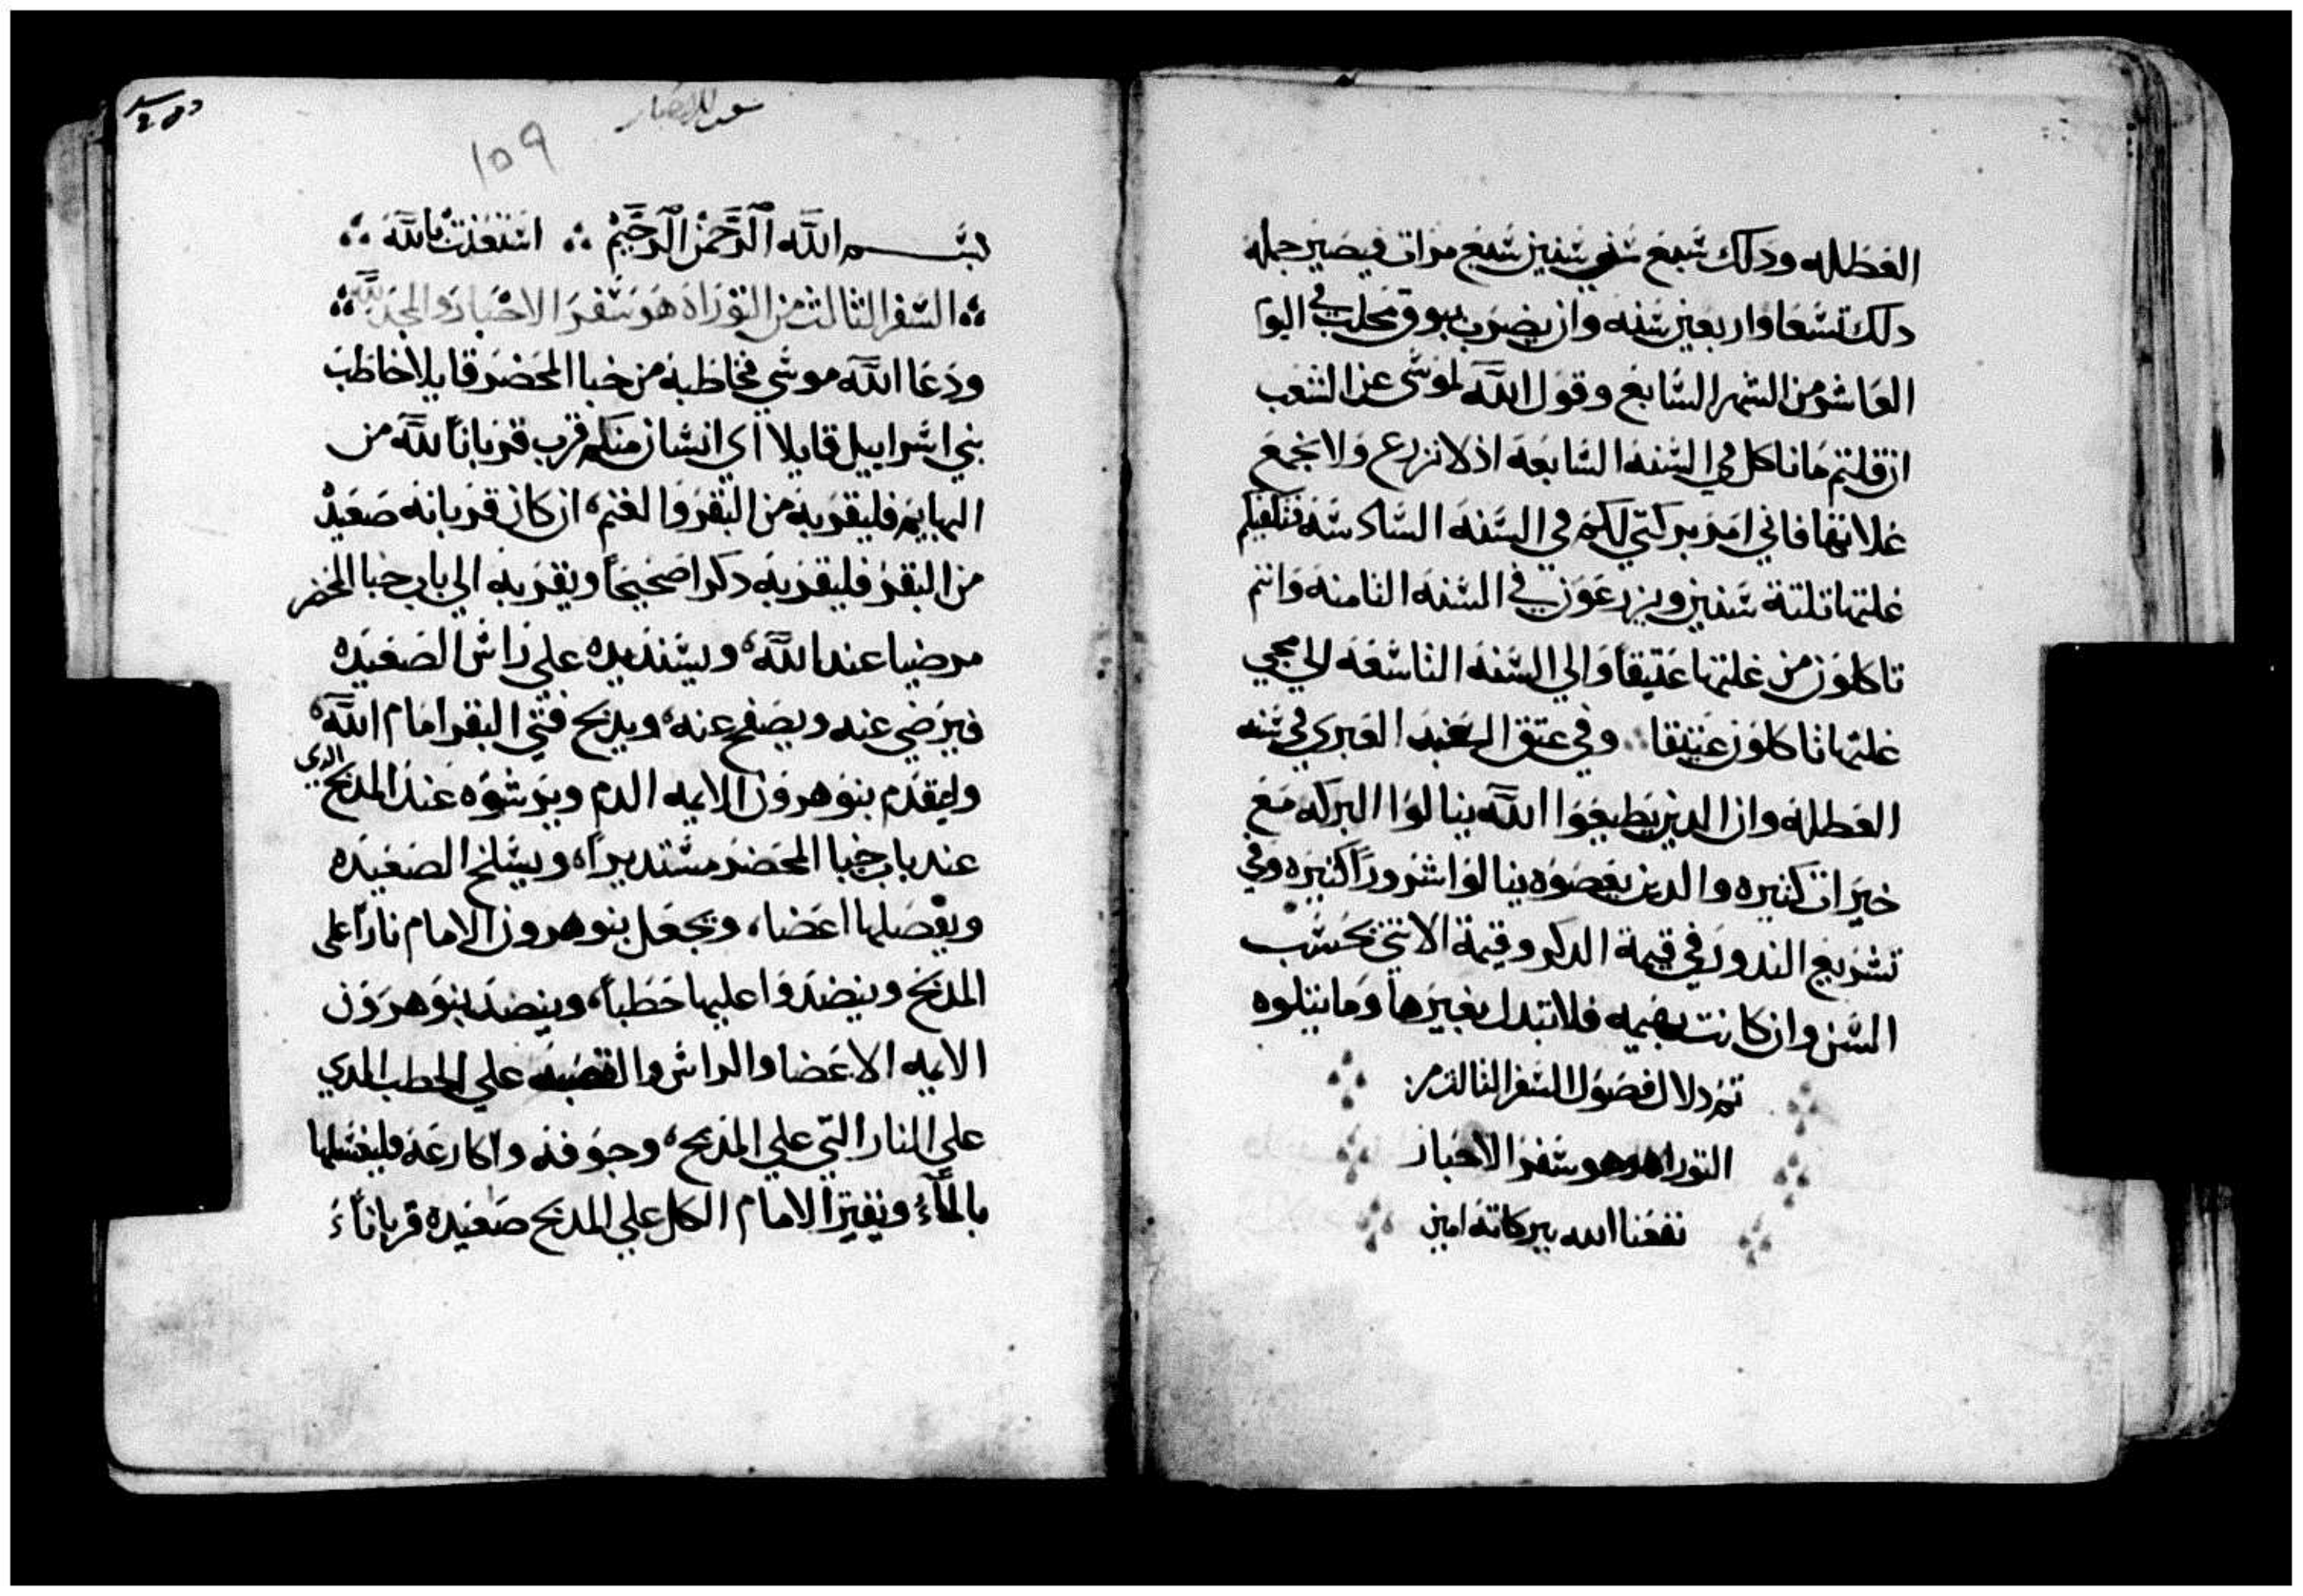 العطله ودلك سَبع سَني سنين سَبع مرات فيصير جمله
دلك تسعا واربعين سنه وان يضرب ببوق مجلب في اليوم
العاشر من الشهر السابع وقول الله لموسى عن الشعب
ان قلتم ما ناكل في السنه السابعه اد لا نزرع ولا نجمع
غلاتها فاني امر ببركتي لكم في السنه السادسه فتكفيكم
غلتها تلتة سنين ويزرعون في السنه التامنه وانتم
تاكلون من غلتها عتيقا والي السنه التاسعه الي مجي
غلتها تاكلون عتيقا وفي عتق العبد العبري في سنه
العطله وان الدين يطيعوا الله ينالوا البركه مع
خيرات كتيره والدين يعصوه ينالوا شرورا كتيره وفي
تشريع الندور في قيمة الدكر وقيمة الانتي بحسب
السن وان كانت بهيمه فلا تبدل بغيرها وما يتلوه
تم دلال فصول السفر التالت من
التوراه وهو سفر الاحبار
نفعنا الله ببركاته امين
سفر الاحبار
١٥٩
بسم الله الرحمن الرحيم استعنت بالله
السفر التالت من التوراه هو سفر الاحبار والمجد لله
ودعا الله موسي مخاطبه من خبا المحضر قايلا خاطب
بني اسراييل قايلا اي انسان منكم قرب قربانا لله من
البهايم فليقربه من البقر والغنم، ان كان قربانه صعيد
من البقر فليقربه دكرا صحيحا ويقربه الي باب خبا المحضر
مرضيا عند الله، ويسند يده علي راس الصعيده
فيرضي عنه ويصفح عنه، ويدبح فتي البقر امام الله،
وليقدم بنو هرون الايمه الدم ويرشوه عند المدبح الدي
عند باب خبا المحضر مستديرا، ويسلخ الصعيده
ويفصلها اعضا، ويجعل بنو هرون الامام نارا على
المدبح وينضدوا عليها حطبا، وينضد بنو هرون
الايمه الاعضا والراس والقصبه علي الحطب الدي
علي النار التي علي المدبح، وجوفه واكارعه فليغسلها
بالماء ويفتر الامام الكل علي المدبح صعيده قربانا